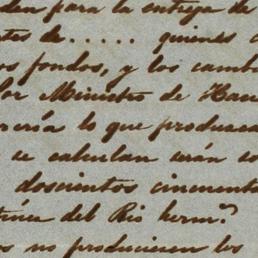 den para la entrega de
tes de..... quienes
os fondos, y los camb
or Ministro de Hac
rería lo que produzca
se calculan serán
doscientos cincuent
tínez del Rio herm.⁵
os no produciesen los